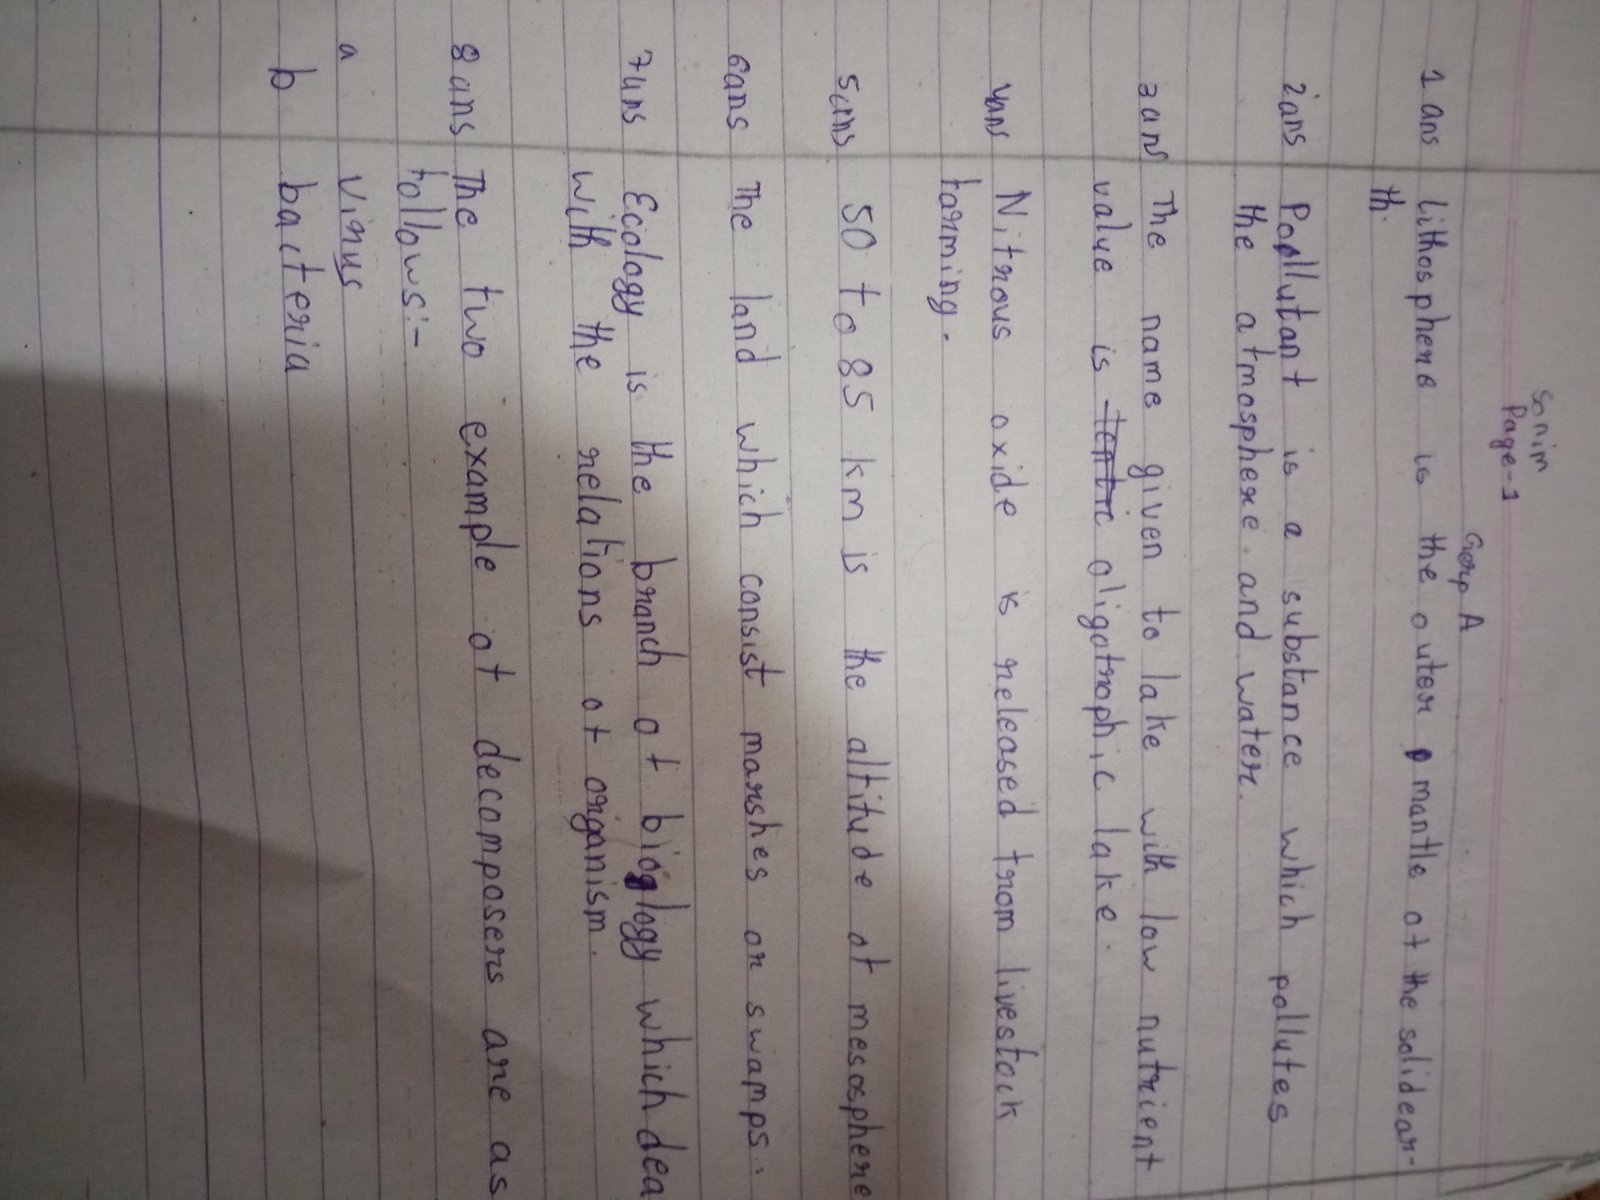 Sonim
Page-1
Gorp A
1 ans Lithosphere is the outer mantle of the solidear-
th.
2ans Pollutant is a substance which pollutes
the atmosphere. and water.
3ans The name given to lake with low nutrient
value is oligotrophic lake.
4ans Nitrous oxide is released from livestock
farming.
5ans 50 to 85 km is the altitude of mesosphere
6ans The land which consist marshes or swamps.
7ans Ecology is the branch of biology which dea
with the relations of organism.
8ans The two example of decomposers are as
follows:-
a virus
b bacteria